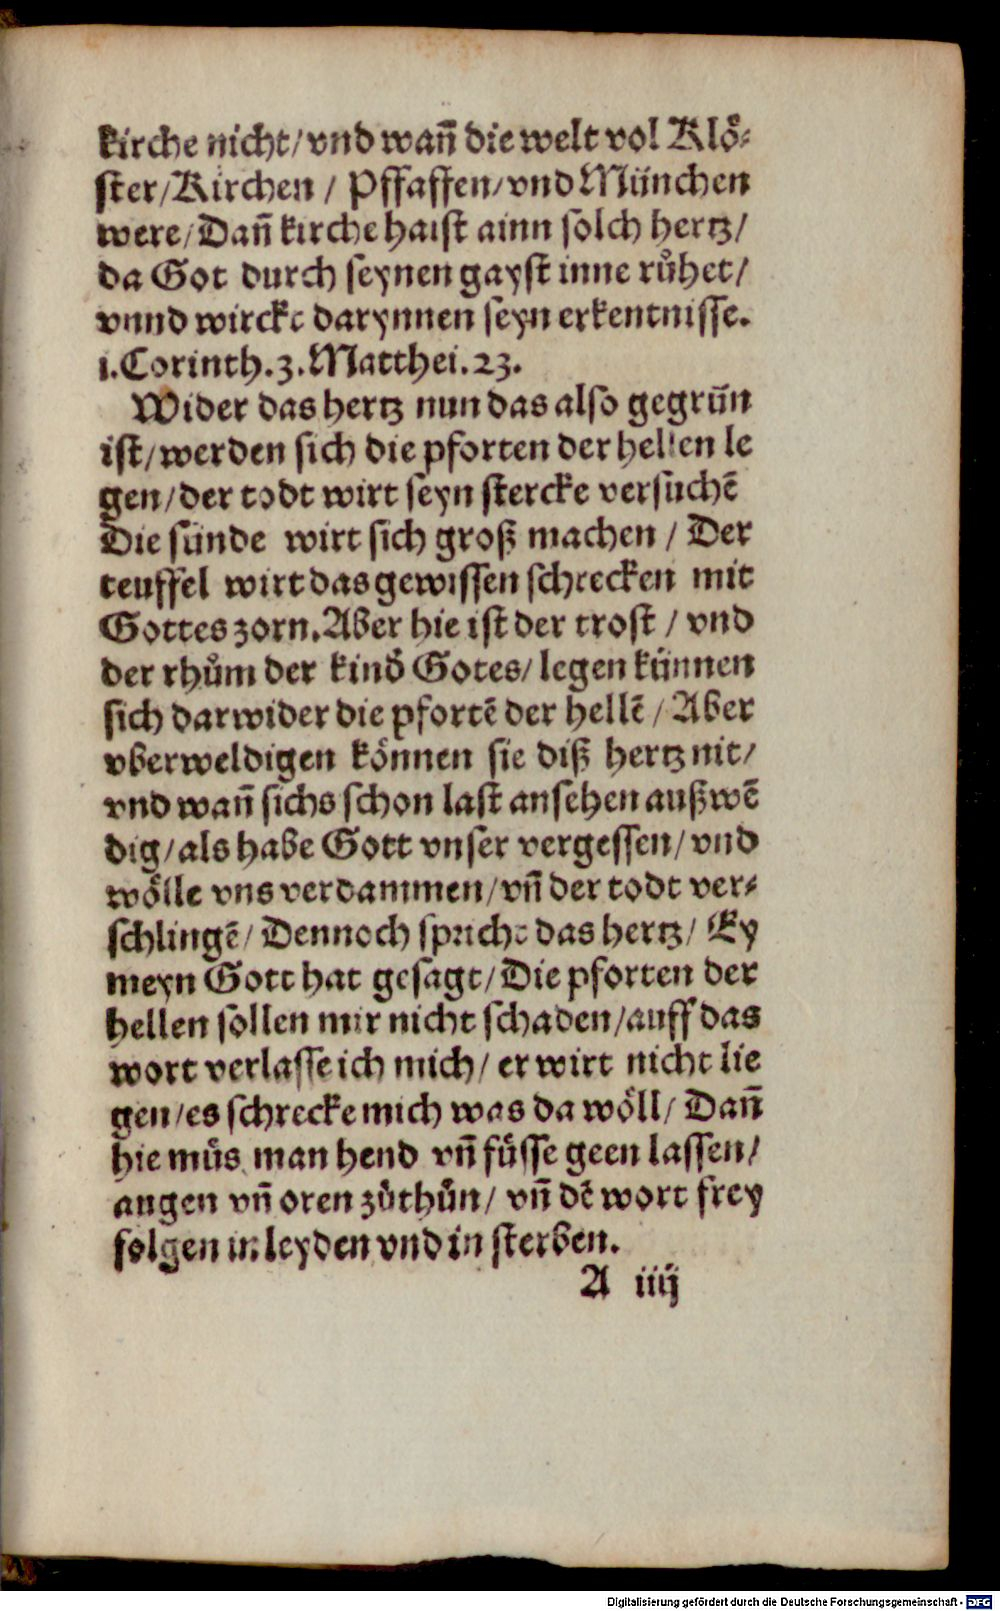 kirche nicht/ vnd wañ die welt vol Klö⸗
ster/ Kirchen / Pffaffen/ vnd München
were/ Dañ kirche haist ainn solch hertz/
da Got durch seynen gayst inne růhet/
vnnd wircke darynnen seyn erkentnisse.
1. Corinth. 3. Matthei. 23.
Wider das hertz nun das also gegrün
ist/ werden sich die pforten der hellen le
gen/ der todt wirt seyn stercke versuchẽ
Die sünde wirt sich groß machen / Der
teuffel wirt das gewissen schrecken mit
Gottes zorn. Aber hie ist der trost / vnd
der rhům der kinď Gotes/ legen künnen
sich darwider die pfortẽ der hellẽ / Aber
vberweldigen können sie diß hertz nit/
vnd wañ sichs schon last ansehen außwẽ
dig/ als habe Gott vnser vergessen/ vnd
wölle vns verdammen/ vñ der todt ver⸗
schlingẽ/ Dennoch spricht das hertz/ Ey
meyn Gott hat gesagt/ Die pforten der
hellen sollen mir nicht schaden/ auff das
wort verlasse ich mich/ er wirt nicht lie
gen/ es schrecke mich was da wöll/ Dañ
hie můs man hend vñ füsse geen lassen/
augen vñ oren zůthůn/ vñ dẽ wort frey
folgen in leyden vnd in sterben.
A iiij
Digitalisierung gefördert durch die Deutsche Forschungsgemeinschaft - DFG